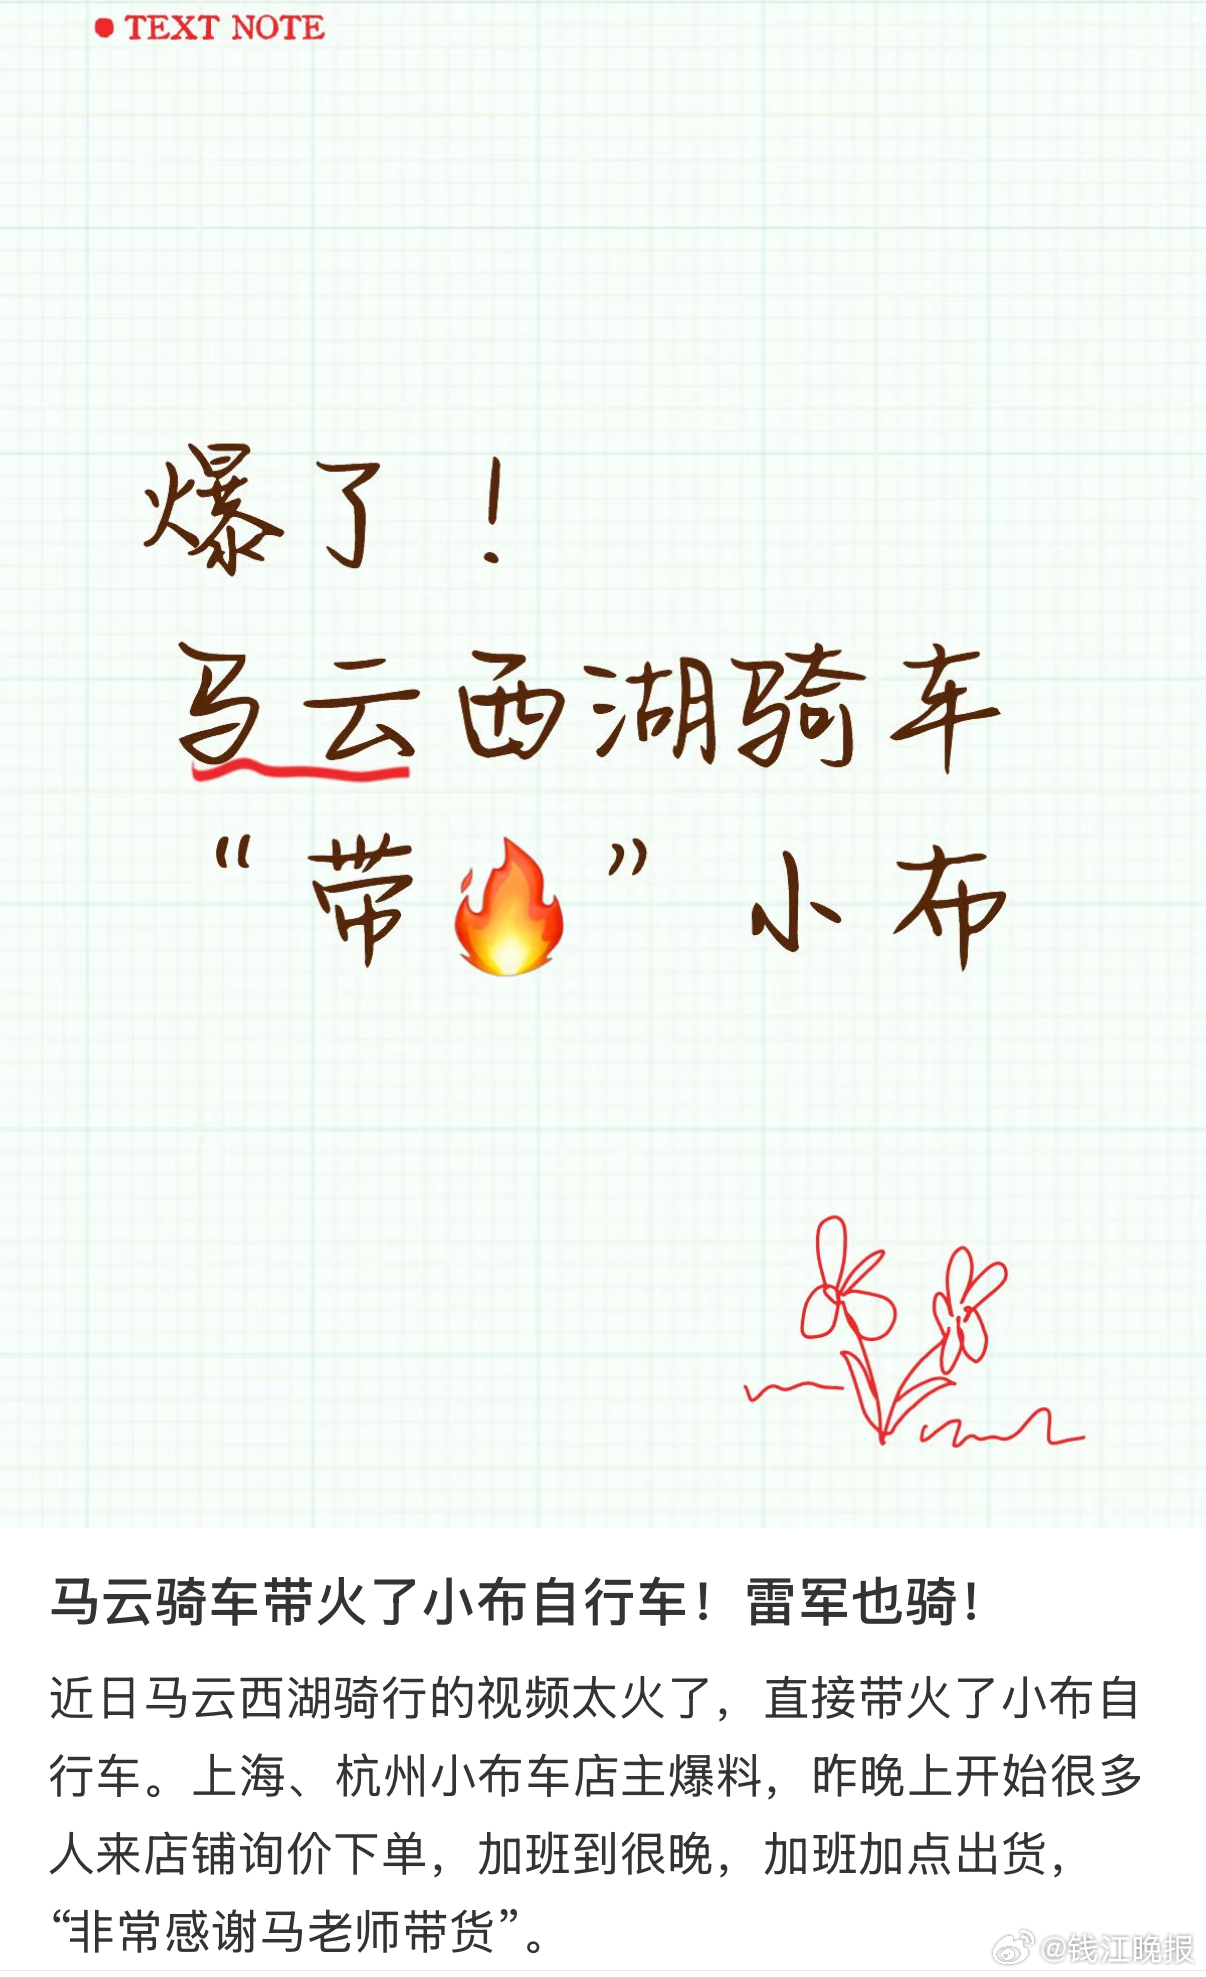 TEXT NOTE
爆了！
马云西湖骑车
“带🔥”小布
马云骑车带火了小布自行车！雷军也骑！
近日马云西湖骑行的视频太火了，直接带火了小布自
行车。上海、杭州小布车店主爆料，昨晚上开始很多
人来店铺询价下单，加班到很晚，加班加点出货，
“非常感谢马老师带货”。
@钱江晚报